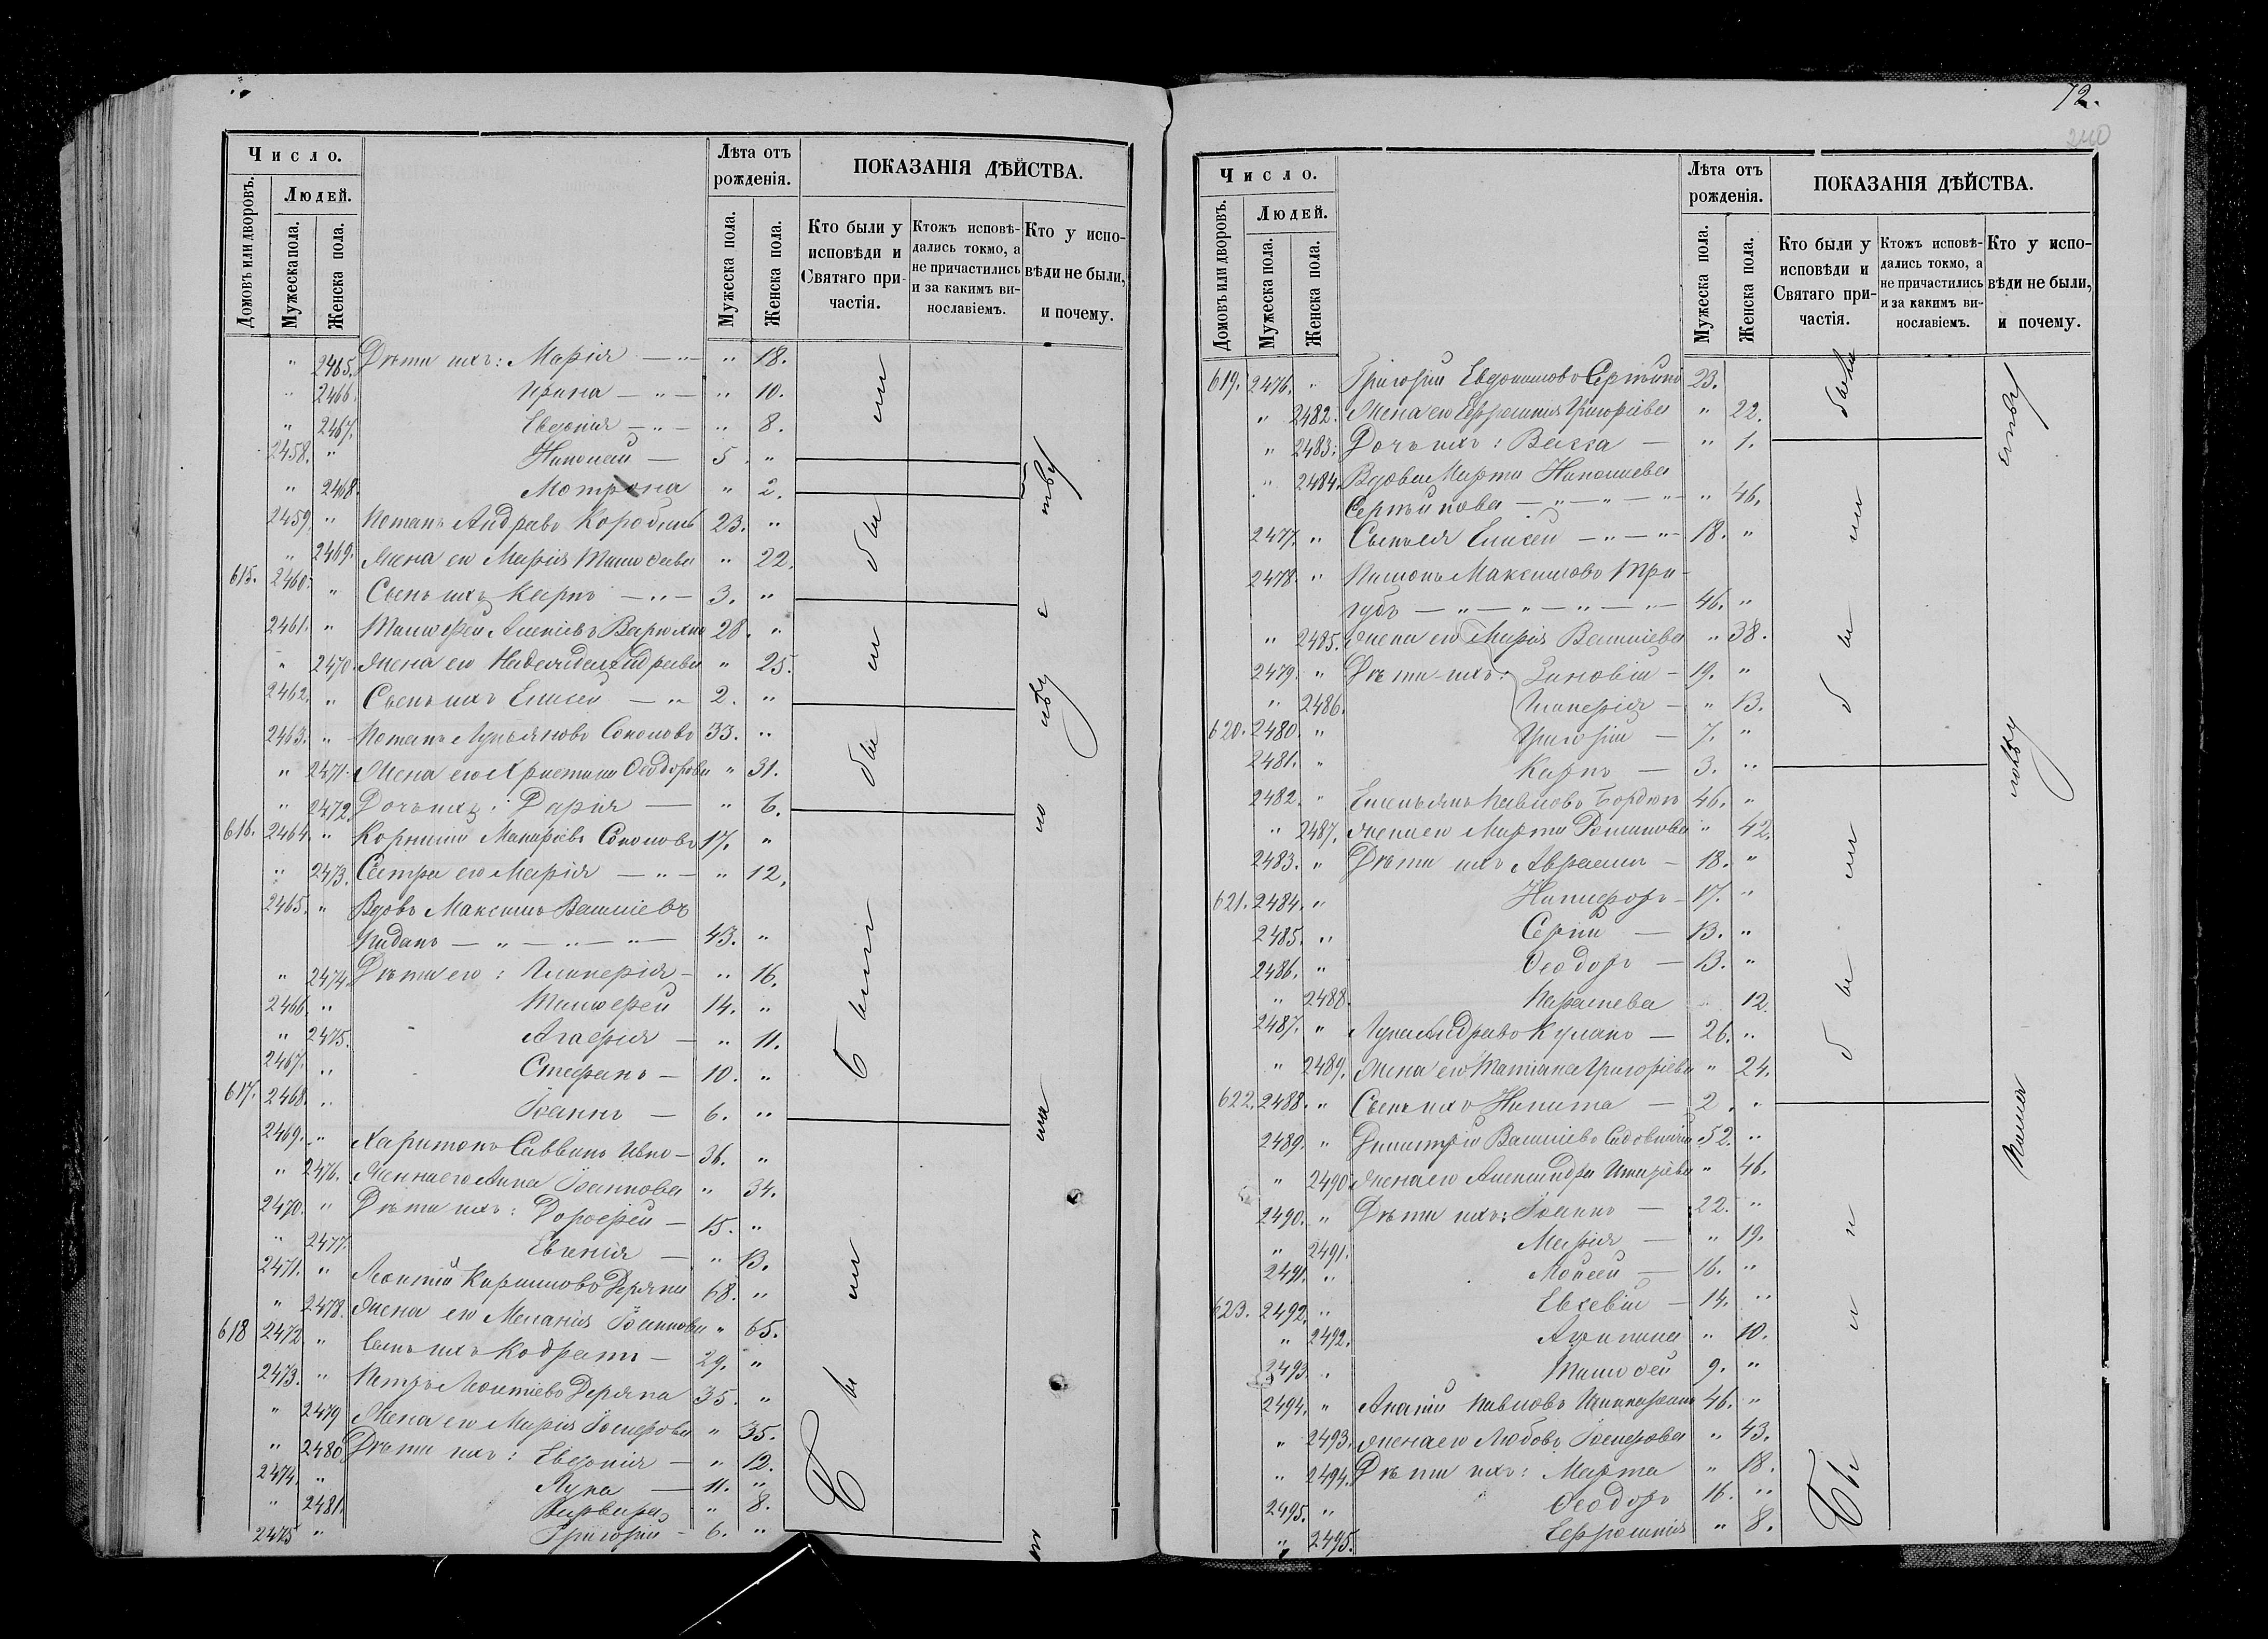 Число.
Лѣта отъ рожденія.
ПОКАЗАНІЯ ДѢЙСТВА.
Домовъ или дворовъ.
Людей.
Мужеска пола.
Женска пола.
Мужеска пола.
Женска пола.
Кто были у исповѣди и Святаго причастія.
Ктожъ исповѣдались токмо, а не причастились и за какимъ винославіемъ.
Кто у исповѣди не были, и почему.
" 2465. Дѣти ихъ: Марія — " — " 18.
" 2466. Ирина — " — " 10.
" 2467. Евдокія — " — " 8.
2458. " Николай — 5. "
" 2468. Мотрона " 2.
2459. " Потапъ Андреевъ 23. "
" 2469. Жена его Марія Тимоѳеева " 22.
615. 2460. " Сынъ ихъ Карпъ — " — 3. "
2461. " Тимоѳей Алексіевъ 28. "
" 2470. Жена его Надежда Андреева " 25.
2462. " Сынъ ихъ Елисей — " 2. "
2463. " Потапъ Лукьяновъ Соколовъ 33. "
" 2471. Жена его Христина Ѳеодорова " 31.
" 2472. Дочь ихъ: Дарія — " 6.
616. 2464. " Корнилій Макаріевъ Соколовъ 17. "
" 2473. Сестра его Марія — " — " 12.
2465. " Вдовъ Максимъ Василіевъ
— " — " — " — 43. "
" 2474. Дѣти его: Гликерія — " 16.
2466. " Тимоѳей 14. "
" 2475. Агафія — " 11.
2467. " Стефанъ — 10. "
617. 2468. " Іоаннъ — 6. "
2469. " Харитонъ Саввинъ — 36. "
" 2476. Жена его Анна Іоаннова " 34.
2470. " Дѣти ихъ: Дороѳей — 15. "
" 2477. Евгенія — " 13.
2471. " Леонтій 68. "
" 2478. Жена его Меланія Іоаннова " 65.
618 2472 " Сынъ ихъ Кодратъ — 29. "
2473. " Петръ Леонтіевъ 35. "
" 2479 Жена его Марія Іосифова " 35.
" 2480 Дѣти ихъ: Евдокія — " 12.
2474. " Лука — 11. "
" 2481. Варвара " 8.
2475 " Григорій — 6. "
72.
240
Число.
Лѣта отъ рожденія.
ПОКАЗАНІЯ ДѢЙСТВА.
Домовъ или дворовъ.
Людей.
Мужеска пола.
Женска пола.
Мужеска пола.
Женска пола.
Кто были у исповѣди и Святаго причастія.
Ктожъ исповѣдались токмо, а не причастились и за какимъ винославіемъ.
Кто у исповѣди не были, и почему.
619. 2476. " Григорій 23.
" 2482. Жена его Ефросинія Григоріева " 22.
" 2483. Дочь ихъ: Васса — " 1.
" 2484. Вдова Марта Николаева
— " — " — " — " 46.
2477. " Сынъ ея Елисей — " — " — 18. "
2478. " Максимовъ Три-
губъ — " — " — " — " — 46. "
" 2485. Жена его Марія Василіева " 38.
2479. " Дѣти ихъ: Зиновій — 19. "
" 2486. Гликерія — " 13.
620. 2480. " Григорій — 7. "
2481. " Карпъ — 3. "
2482. " Емельянъ Павловъ Бордюгъ 46. "
" 2487. Жена его Марта Романова " 42.
2483. " Дѣти ихъ Авраамъ — 18. "
621. 2484. " Никифоръ — 17. "
2485. " Сергій — 13. "
2486. " Ѳеодоръ — 13. "
" 2488. Параскева 12.
2487. " Лука Андреевъ Кулакъ — 26. "
" 2489. Жена его Татіана Григоріева " 24.
622. 2488. " Сынъ ихъ Никита — 2. "
2489. " Димитрій Василіевъ 52. "
" 2490. Жена его Александра " 46.
2490. " Дѣти ихъ: Іоаннъ — 22. "
" 2491. Марія — " 19.
2491. " Моисей — 16. "
623. 2492. " Евсевій — 14. "
" 2492. " 10.
2493. " Тимоѳей 9. "
2494. " Павловъ 46. "
" 2493. Жена его Любовь Іосифова " 43.
" 2494. Дѣти ихъ: Марта " 18.
2495. " Ѳеодоръ 16. "
" 2495. Ефросинія " 8.